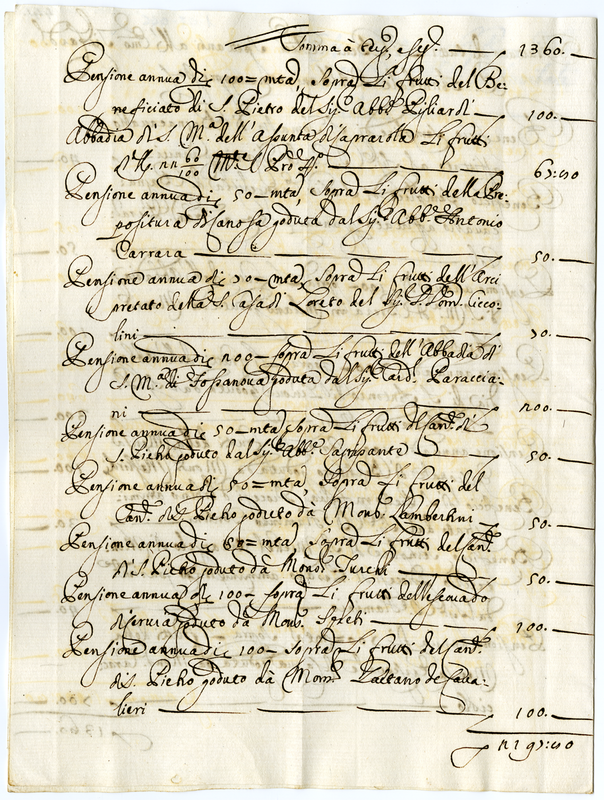 Somma à tergo, e segue — 1360. —
Pensione annua di ▽ 100= mta, sopra Li frutti del Be:
neficiato di S. Pietro del Sig.r Abb.e Pigliardi — 100. —
Abbadia di S. M.a dell'Assunta di Caprarola Li frutti
— 65:40
Pensione annua di ▽ 50— mta, sopra Li frutti della Pre:
positura di Canossa goduta dal Sig.r Abb.e Antonio
Carrara — 50. —
Pensione annua di ▽ 30— mta, sopra Li frutti dell'Arci
pretato della S. Casa di Loreto del Sig.r D. Dom.co Cicco:
lini — 30. —
Pensione annua di ▽ 200— sopra Li frutti dell'Abbadia di
S. M.a di Fossanova goduta dal Sig.r Card. Paraccia:
ni — 200. —
Pensione annua di ▽ 50— mta, sopra Li frutti del Can.to di
S. Pietro goduto dal Sig.r Abb.e Sampante — 50. —
Pensione annua di ▽ 50= mta, sopra Li frutti del
Can.to di S. Pietro goduto dà Mons.r Lambertini — 50. —
Pensione annua di ▽ 50= mta, sopra Li frutti del Can.to
di S. Pietro goduto dà Mons.r Turchi — 50. —
Pensione annua di ▽ 100— sopra Li frutti del Vescovado
di Cervia goduto dà Mons.r Spreti — 100. —
Pensione annua di ▽ 100— sopra Li frutti del Can.to
di S. Pietro goduto dà Mons.r Gaetano de Cava:
lieri — 100. —
▽ 2195:40